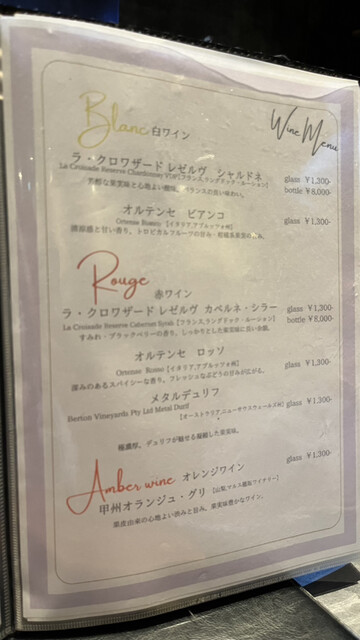 Wine Menu
Blanc 白ワイン
ラ・クロワザード レゼルヴ シャルドネ
La Croisade Reserve Chardonnay VDP【フランス,ラングドック・ルーション】
glass ￥1,300-
bottle ￥8,000-
芳醇な果実味と心地よい酸味。バランスの良い味わい。
オルテンセ ビアンコ
Ortense Bianco【イタリア,アブルッツォ州】
glass ￥1,300-
清涼感と甘い香り。トロピカルフルーツの甘み・柑橘系果実の
Rouge
赤ワイン
ラ・クロワザード レゼルヴ カベルネ・シラー
La Croisade Reserve Cabernet Syrah【フランス,ラングドック・ルーション】
glass ￥1,300-
bottle ￥8,000-
すみれ・ブラックベリーの香り。しっかりとした果実味に長い余韻。
オルテンセ ロッソ
Ortense Rosso【イタリア,アブルッツォ州】
glass ￥1,300-
深みのあるスパイシーな香り。フレッシュなぶどうの甘みが広がる。
メタルデュリフ
Berton Vineyards Pty Ltd Metal Durif
【オーストラリア,ニューサウスウェールズ州】
glass ￥1,300-
極濃厚。デュリフが魅せる凝縮した果実味。
Amber wine オレンジワイン
glass ￥1,300-
甲州オランジュ・グリ【山梨,マルス穂坂ワイナリー】
果皮由来の心地よい渋みと旨み。果実味豊かなワイン。